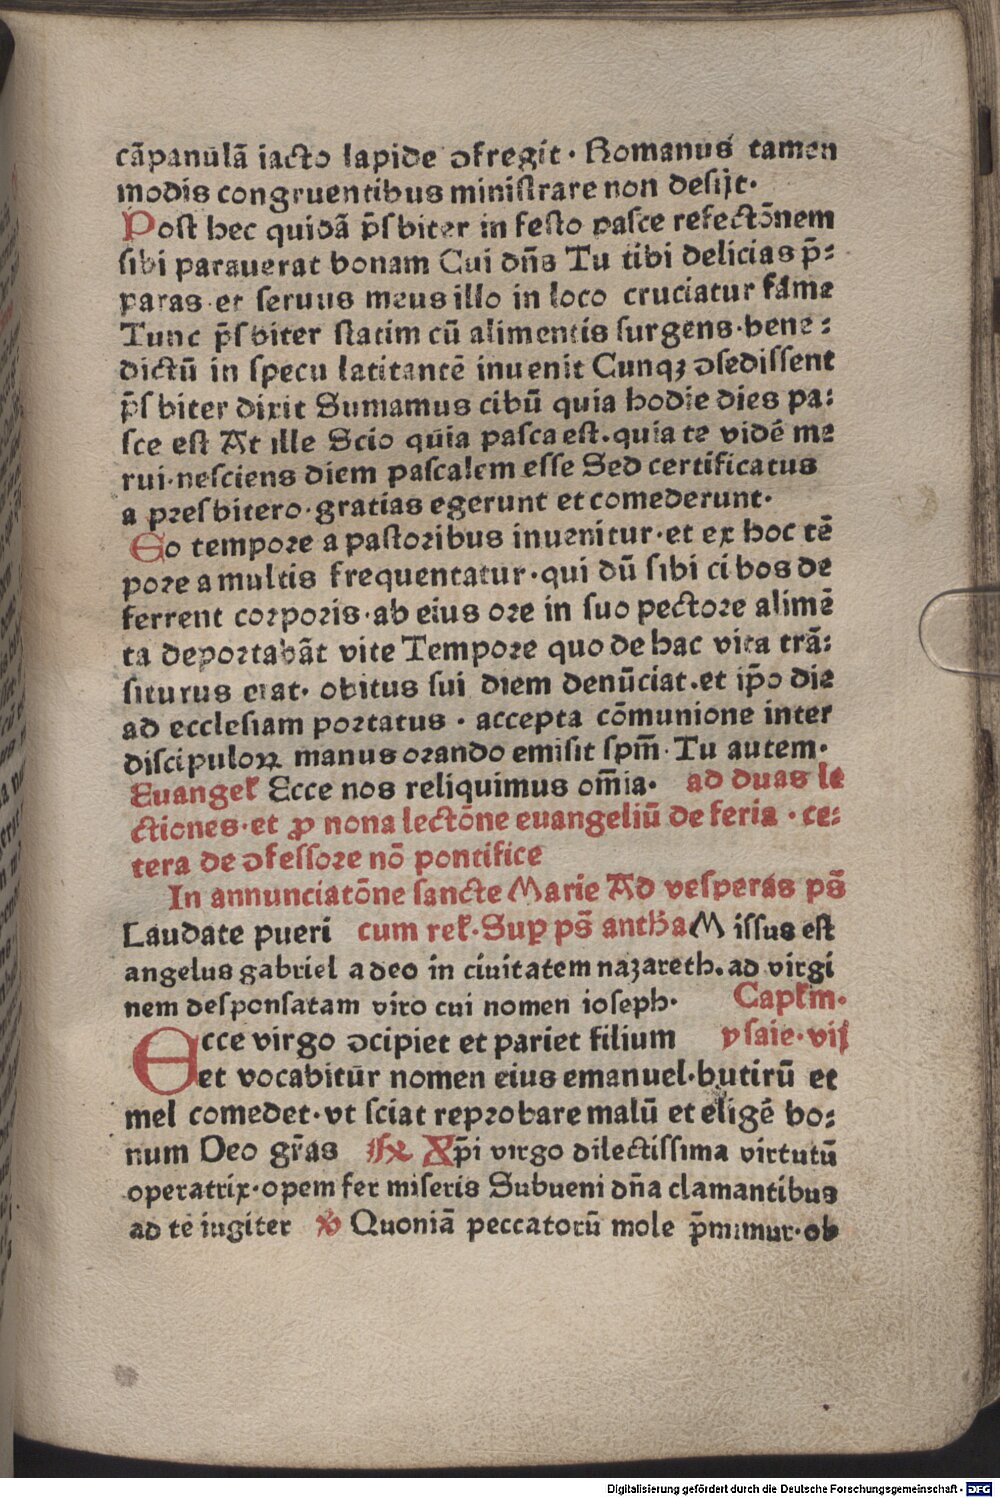 cāpanulā iacto lapide ↄfregit · Romanus tamen
modis congruentibus miniſtrare non deſijt·
Poſt hec quidā p̄ſbiter in feſto paſce refectōnem
ſibi parauerat bonam Cui dn̄s Tu tibi delicias p̄⸗
paras·et ſeruus meus illo in loco cruciatur fame
Tunc p̄ſbiter ſtatim cū alimentis ſurgens·bene⸗
dictū in ſpecu latitantē inuenit Cunqꝫ ↄſediſſent
p̄ſbiter dixit Sumamus cibū quia hodie dies pa⸗
ſce eſt At ille Scio quia paſca eſt·quia te vidē me
rui·neſciens diem paſcalem eſſe Sed certificatus
a preſbitero·gratias egerunt et comederunt·
Eo tempore a paſtoribus inuenitur·et ex hoc tē
pore a multis frequentatur·qui dū ſibi cibos de
ferrent corporis·ab eius ore in ſuo pectore alimē
ta deportabāt vite Tempore quo de hac vita trā⸗
ſiturus erat· obitus ſui diem denūciat·et ip̄o die
ad eccleſiam portatus · accepta cōmunione inter
diſcipuloꝝ manus orando emiſit ſpm̄·Tu autem·
Euangeꝉ Ecce nos reliquimus om̄ia· ad duas le
ctiones·et ꝓ nona lectōne euangeliū de feria · ce⸗
tera de ↄfeſſore nō pontifice
In annunciatōne ſancte Marie Ad veſperas pſ̄
Laudate pueri cum reꝉ·Sup pſ̄ antħa Miſſus eſt
angelus gabriel a deo in ciuitatem nazareth·ad virgi
nem deſponſatam viro cui nomen ioſeph· Capꝉm·
Ecce virgo ↄcipiet et pariet filium yſaie·vij
et vocabitur nomen eius emanuel·butirū et
mel comedet·vt ſciat reprobare malū et eligē bo⸗
num Deo gr̄as ℟ Xp̄i virgo dilectiſſima virtutū
operatrix·opem fer miſeris Subueni dn̄a clamantibus
ad te iugiter ℣ Quoniā peccatorū mole p̄mimur·ob
Digitalisierung gefördert durch die Deutsche Forschungsgemeinschaft - DFG